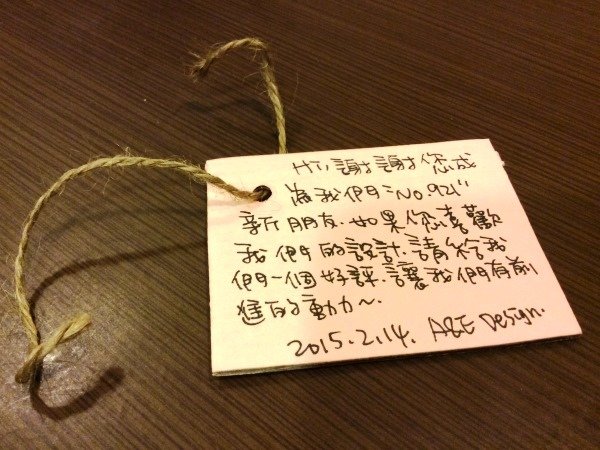 Hi, 謝謝您成
為我們“No.921”
新朋友.如果您喜歡
我們的設計.請給我
們一個好評.讓我們有前
進的動力~.
2015.2.14. A&E Design.